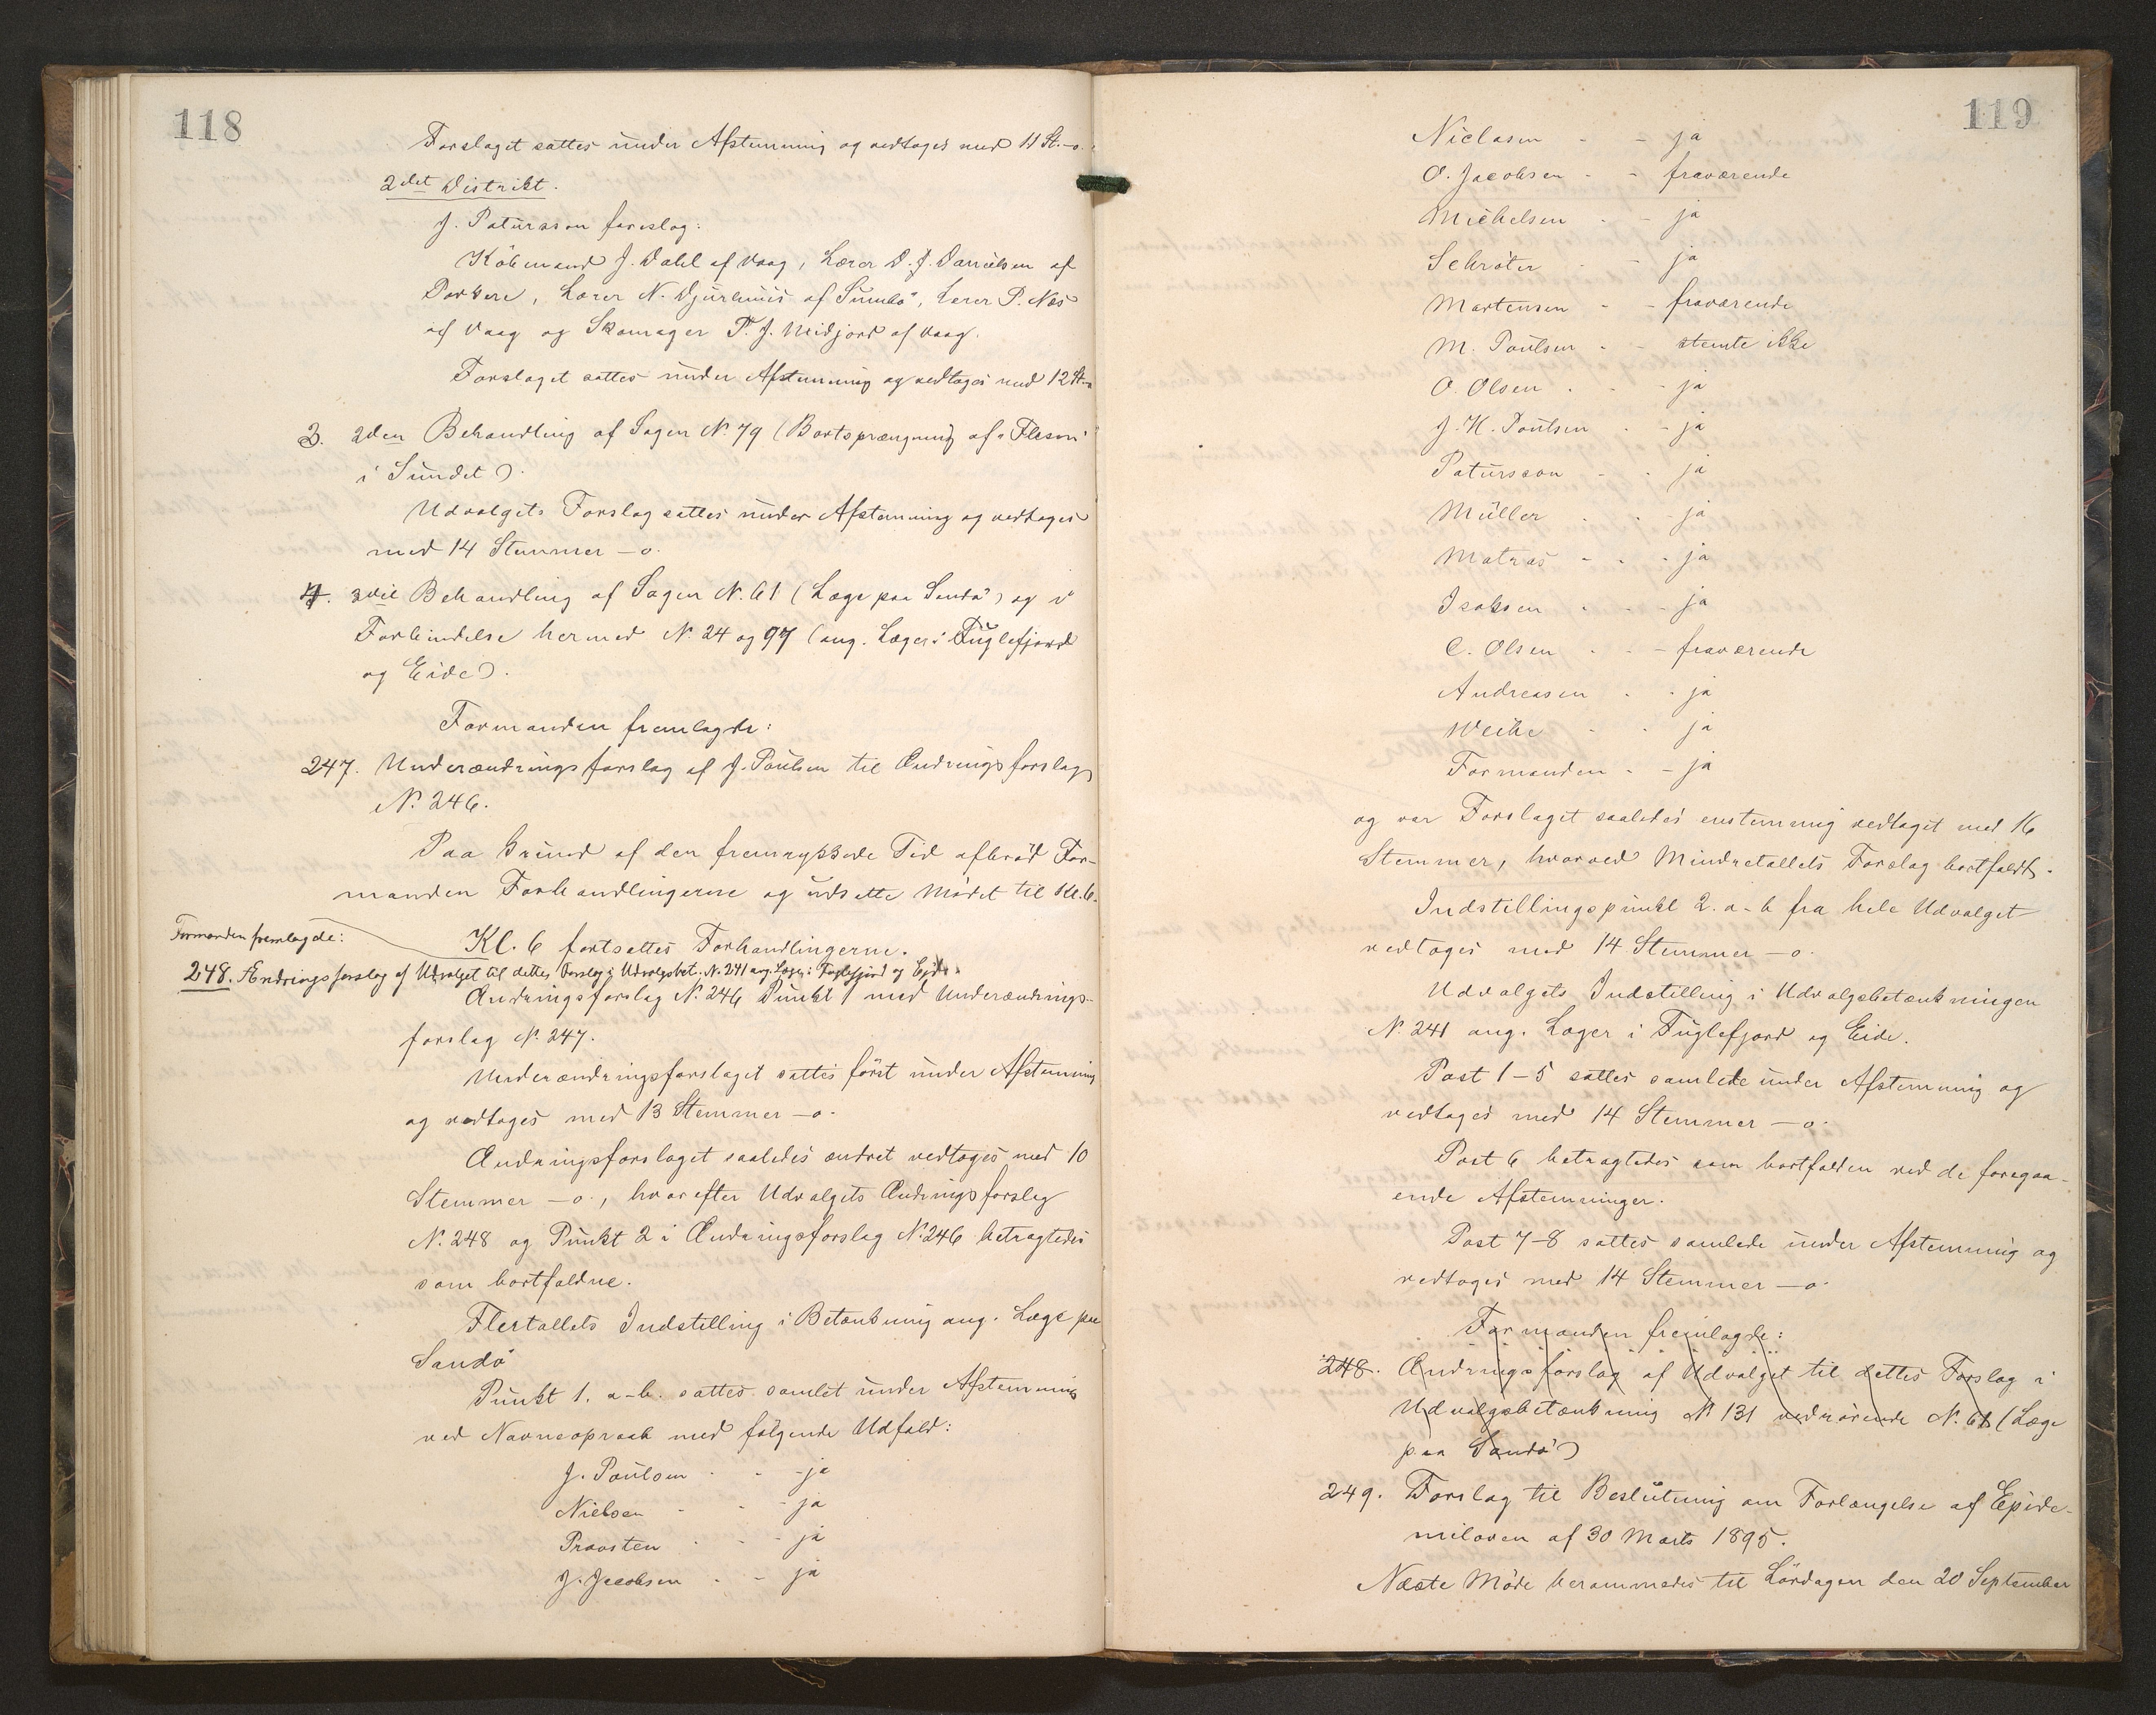 118
Forslaget sattes under Afstemning og vedtoges med 11 St.-o.
2det Distrikt.
J. Patursson foreslog:
Købmand J. Dahl af Vaag, Lærer D. J. Danielsen af
Porkere, Lærer N. Djurhuus af Sumbø, Lærer P. Næs
af Vaag og Skomager P. J. Midjord af Vaag.
Forslaget sattes under Afstemning og vedtoges med 12 St.-o
3. 2den Behandling af Sagen N. 79 (Bortsprængning af "Flesen"
i Sundet).
Udvalgets Forslag sattes under Afstemning og vedtoges
med 14 Stemmer -o.
4. 3die Behandling af Sagen N. 61 (Læge paa Sandø) og i
Forbindelse hermed N. 24 og 97 (ang. Læger i Fuglefjord
og Eide).
Formanden fremlagde:
247. Underændringsforslag af J. Poulsen til Ændringsforslag
N. 246.
Paa Grund af den fremrykkede Tid afbrød For-
manden Forhandlingerne og udsatte Mødet til Kl. 6.
Formanden fremlagde:
Kl. 6 fortsattes Forhandlingerne.
248. Ændringsforslag af Udvalget til dettes Forslag i Udvalgsbet. N. 241 ang. Læger i Fuglefjord og Ejde.
Ændringsforslag N. 246 Punkt 1 med Underændrings-
forslag N. 247.
Underændringsforslaget sattes først under Afstemning
og vedtoges med 13 Stemmer -o-
Ændringsforslaget saaledes ændret vedtoges med 10
Stemmer -o., hvorefter Udvalgets Ændringsforslag
N. 248 og Punkt 2 i Ændringsforslag N. 246 betragtedes
som bortfaldne.
Flertallets Indstilling i Betænkning ang. Læge paa
Sandø
Punkt 1. a-b. sattes samlet under Afstemning
ved Navneopraab med følgende Udfald:
J. Poulsen - - ja
Nielsen - - ja
Provsten - - ja
J. Jacobsen - - ja
119
Niclasen - - ja
O. Jacobsen - - fraværende
Michelsen - - ja
Schrøter - - ja
Mortensen - - fraværende
M. Poulsen - - stemte ikke
O. Olsen - - ja
J. H. Poulsen - - ja
Patursson - - ja
Müller - - ja
Matras - - - ja
Isaksen - - - ja
C. Olsen - - - fraværende
Andreasen - - ja
Weihe - - ja
Formanden - - ja
og var Forslaget saaledes enstemmig vedtaget med 16
Stemmer, hvorved Mindretallets Forslag bortfaldt.
Indstillingspunkt 2. a-b fra hele Udvalget
vedtoges med 14 Stemmer -o-
Udvalgets Indstilling i Udvalgsbetænkningen
N. 241 ang. Læger i Fuglefjord og Eide.
Post 1-5 sattes samlede under Afstemning og
vedtoges med 14 Stemmer -o-
Post 6 betragtedes som bortfalden ved de foregaa-
ende Afstemninger.
Post 7-8 sattes samlede under Afstemning og
vedtoges med 14 Stemmer -o-
Formanden fremlagde:
248. Ændringsforslag af Udvalget til dettes Forslag i
Udvalgsbetænkning N. 131 vedrørende N. 61 (Læge
paa Sandø)
249. Forslag til Beslutning om Forlængelse af Epide-
miloven af 30 Marts 1895.
Næste Møde berammedes til Lørdagen den 20 September